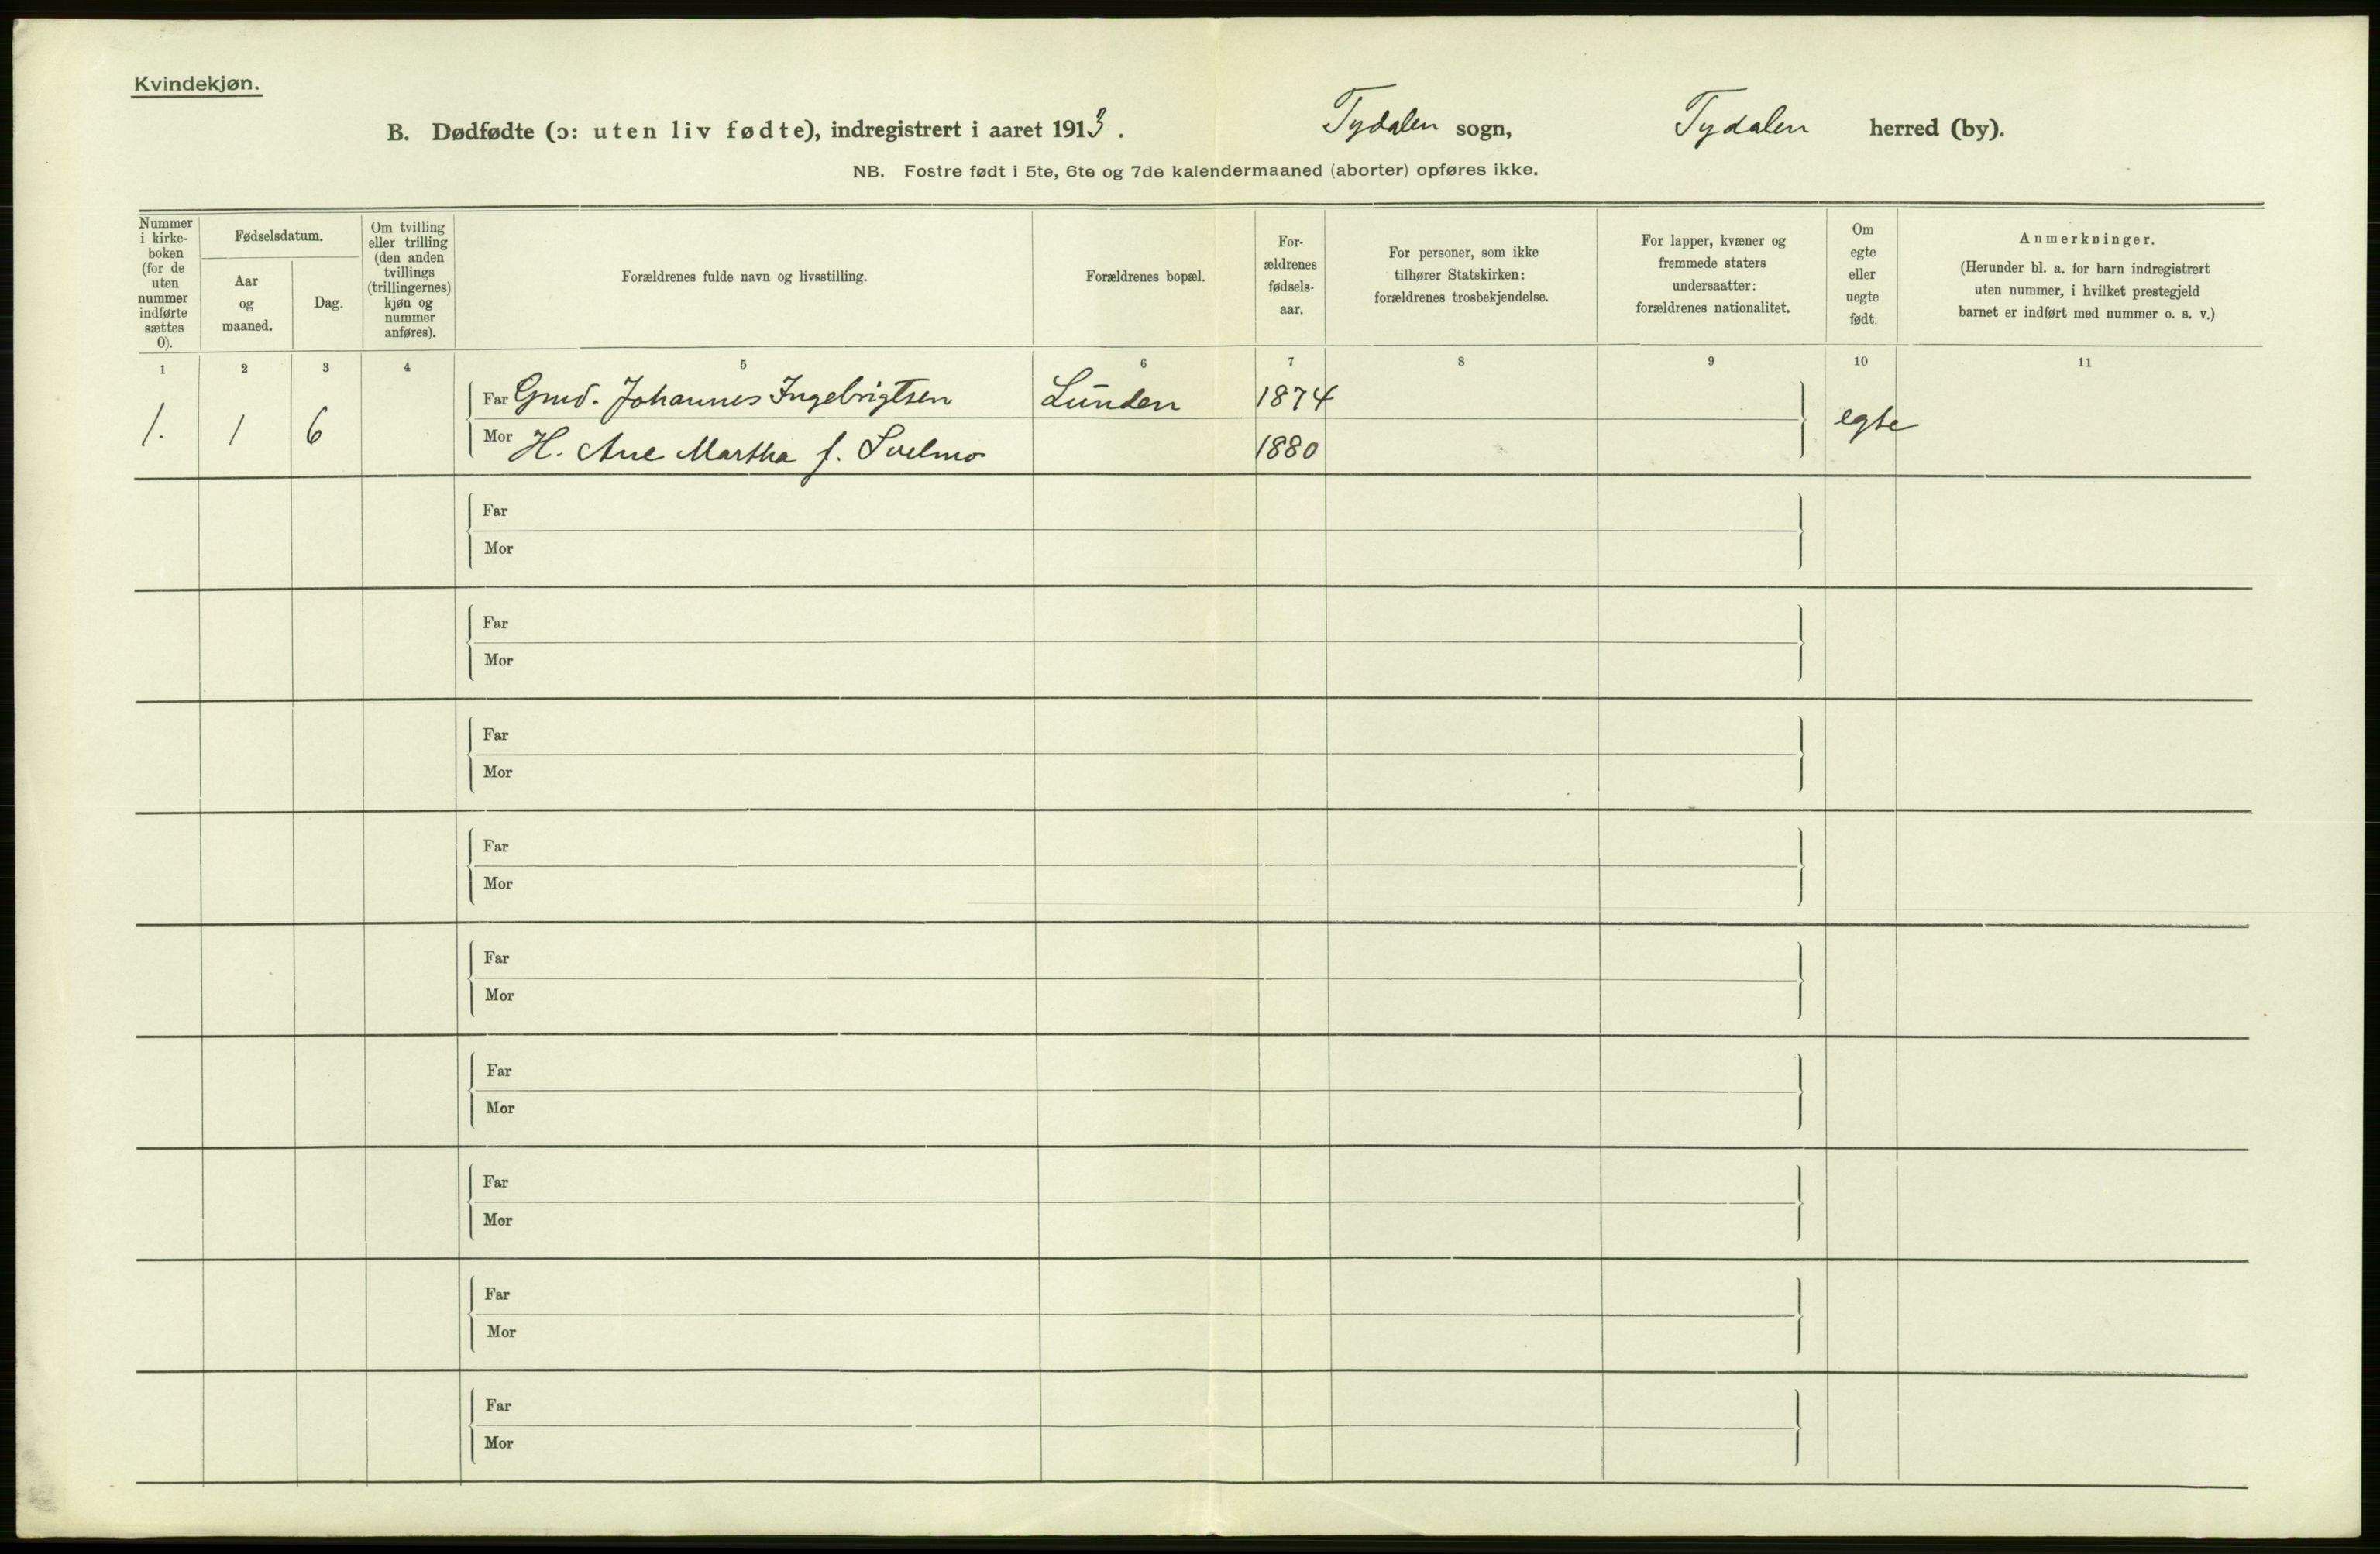 Kvindekjøn.
B. Dødfødte (ɔ: uten liv fødte), indregistrert i aaret 1913. Tydalen sogn, Tydalen herred (by).
NB. Fostre født i 5te, 6te og 7de kalendermaaned (aborter) opføres ikke.
Nummer
i kirke-
boken
(for de
uten
nummer
indførte
sættes
0).
Fødselsdatum.
Aar
og
maaned.
Dag.
Om tvilling
eller trilling
(den anden
tvillings
(trillingernes)
kjøn og
nummer
anføres).
Forældrenes fulde navn og livsstilling.
Forældrenes bopæl.
For-
ældrenes
fødsels-
aar.
For personer, som ikke
tilhører Statskirken:
forældrenes trosbekjendelse.
For lapper, kvæner og
fremmede staters
undersaatter:
forældrenes nationalitet.
Om
egte
eller
uegte
født.
Anmerkninger.
(Herunder bl. a. for barn indregistrert
uten nummer, i hvilket prestegjeld
barnet er indført med nummer o. s. v.)
1 2 3 4 5 6 7 8 9 10 11
1. 1 6
Far Gmd. Johannes Ingebrigtsen Lunden 1874
egte
Mor H. Ane Martha f. Svelmo 1880
Far
Mor
Far
Mor
Far
Mor
Far
Mor
Far
Mor
Far
Mor
Far
Mor
Far
Mor
Far
Mor